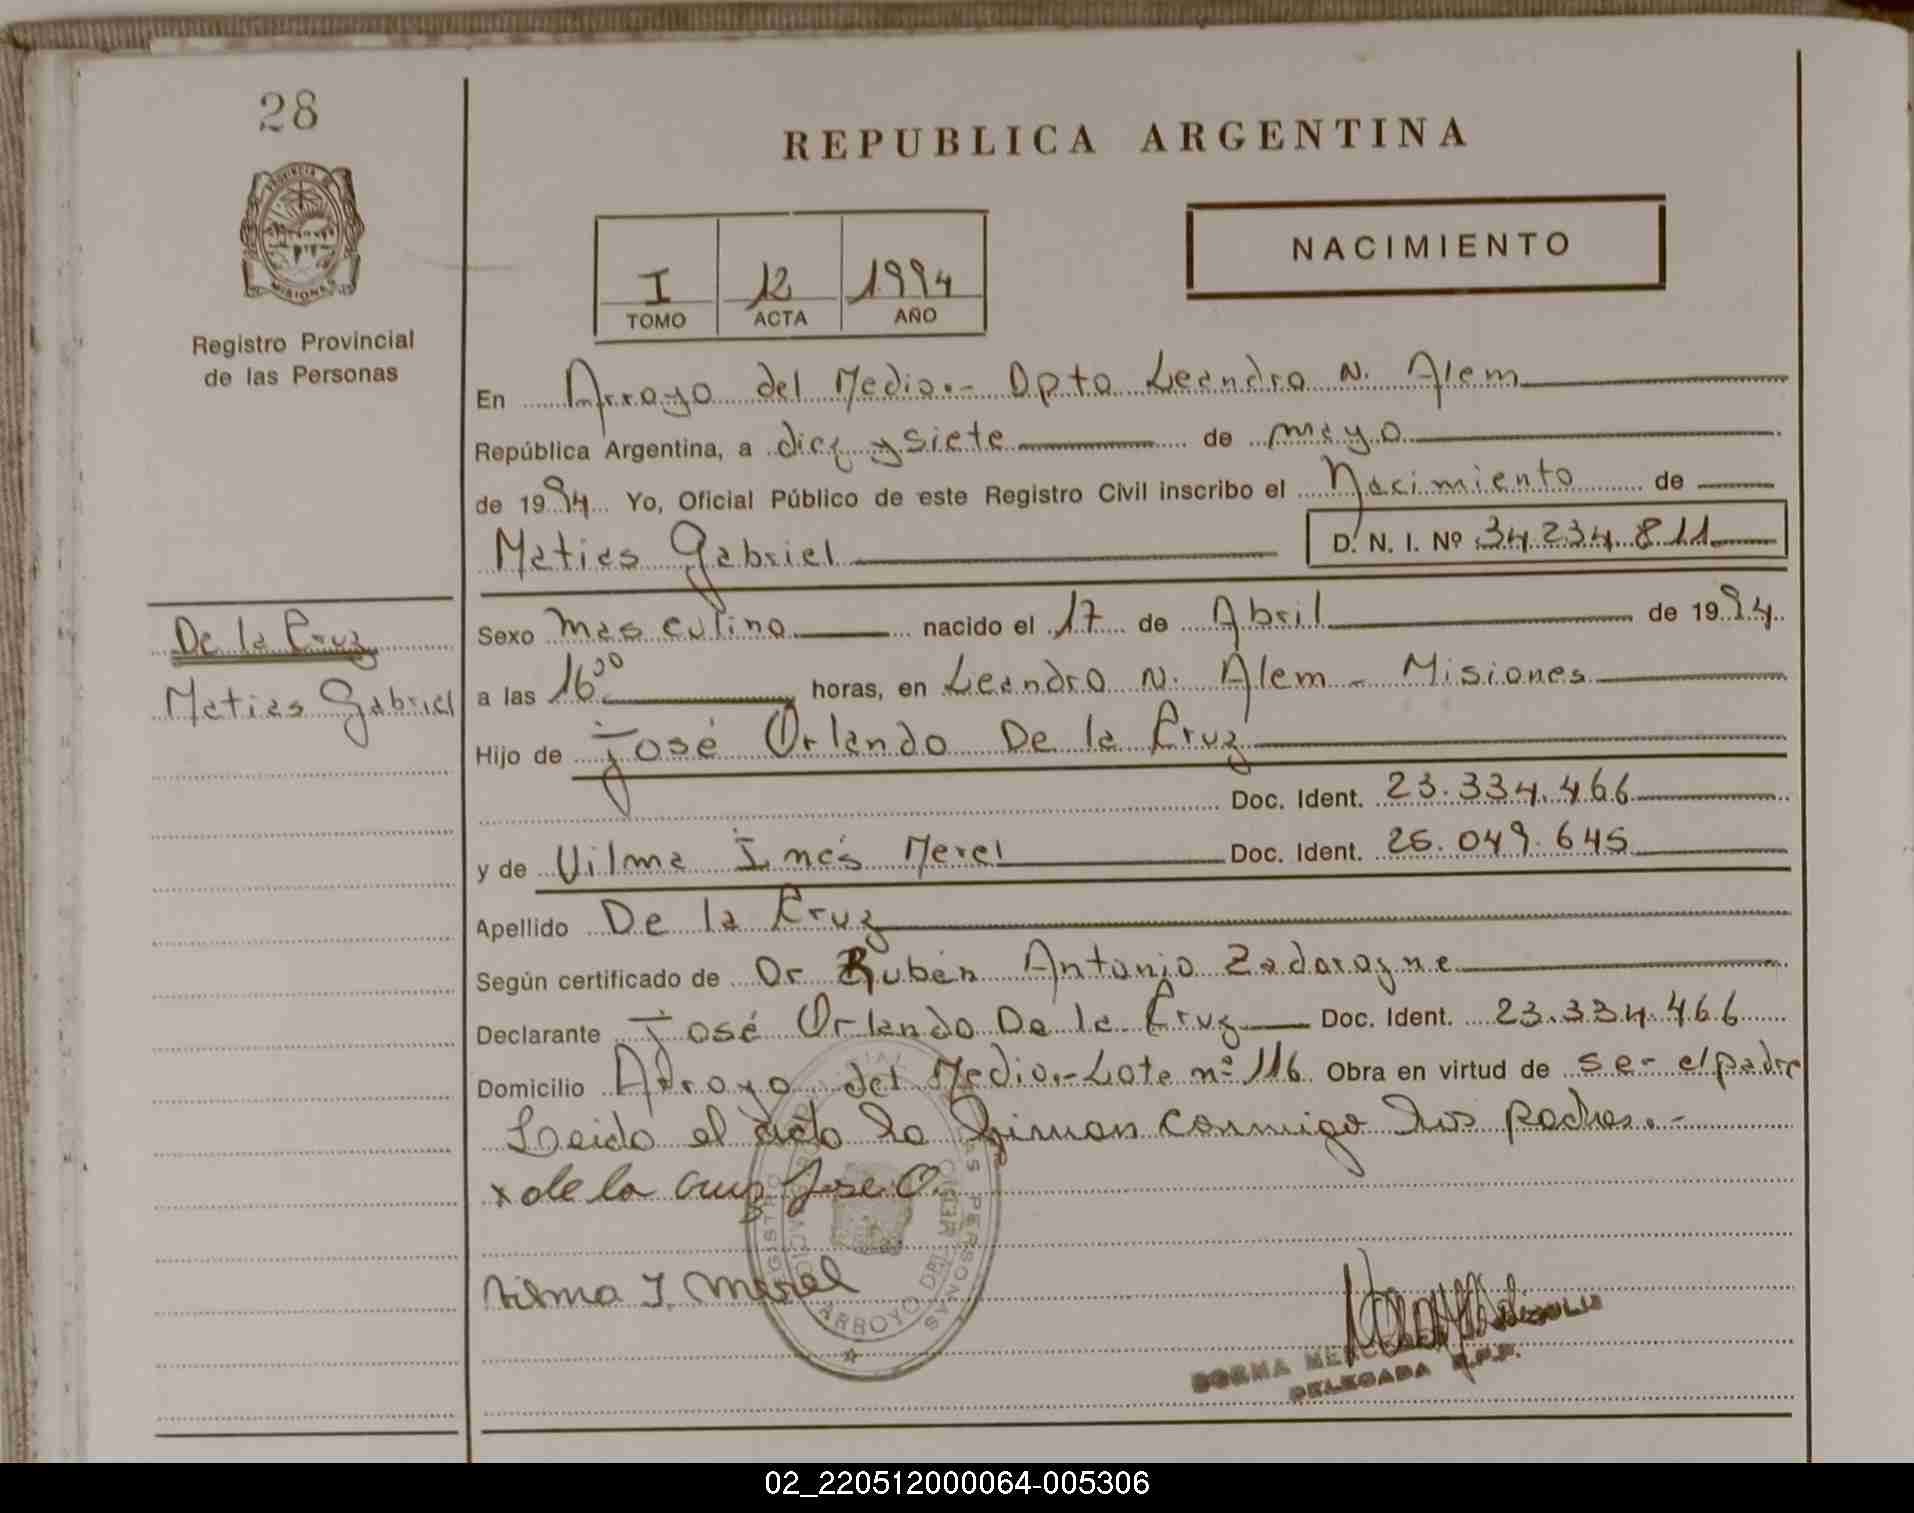 28
PROVINCIA DE
MISIONES
Registro Provincial
de las Personas
REPUBLICA ARGENTINA
I 12 1994
TOMO ACTA AÑO
NACIMIENTO
En Arroyo del Medio.- Dpto Leandro N. Alem
República Argentina, a diez y siete de mayo
de 1994 Yo, Oficial Público de este Registro Civil inscribo el Nacimiento de
Matias Gabriel D. N. I. Nº 34.234.811
De la Cruz
Matias Gabriel
Sexo masculino nacido el 17 de Abril de 1994
a las 16 00 horas, en Leandro N. Alem - Misiones
Hijo de José Orlando De la Cruz
Doc. Ident. 23.334.466
y de Vilma Inés Merel Doc. Ident. 25.049.645
Apellido De la Cruz
Según certificado de Dr Rubén Antonio
Declarante José Orlando De la Cruz Doc. Ident. 23.334.466
Domicilio Arroyo del Medio.- Lote nº 116 Obra en virtud de ser el padre
Leida el acta la firman conmigo los padres.-
x de la Cruz Jose O.
Vilma I. Merel
REGISTRO LAS PERSONAS
ARROYO DEL MEDIO
DELEGADA R.P.P.
02_220512000064-005306